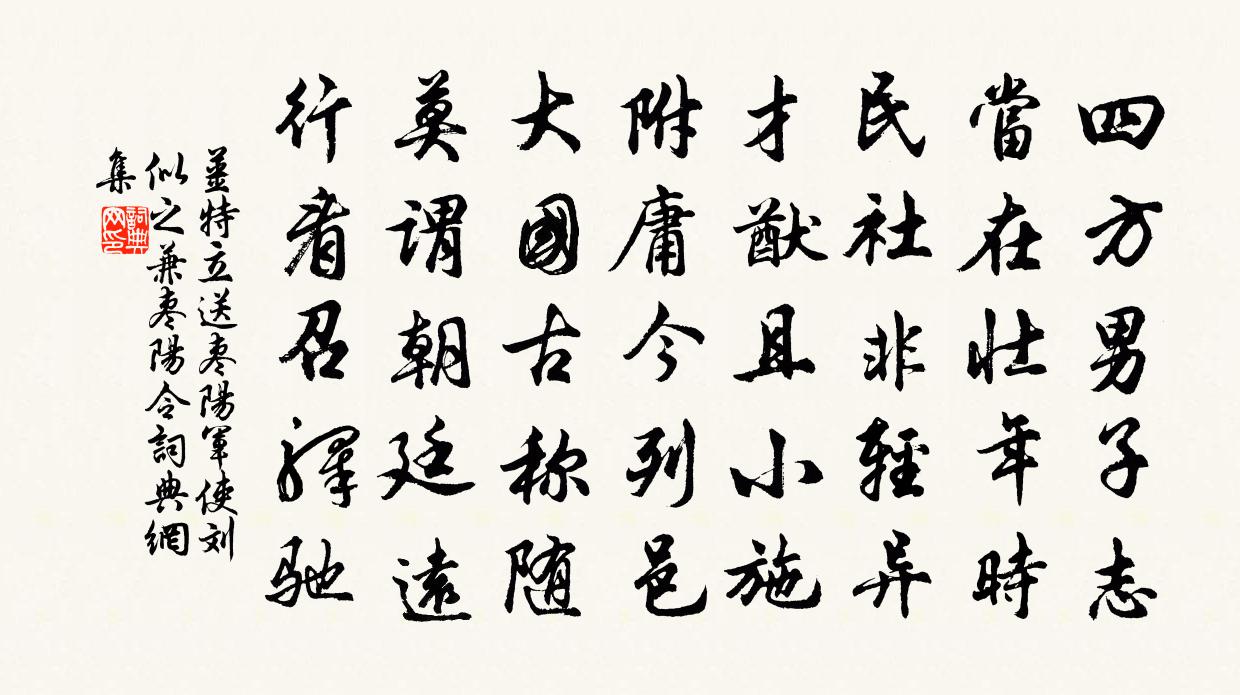 四方男子志
當在壮年時
民社非輕异
才猷且小施
附庸今列邑
大國古称随
莫謂朝廷遠
行看召驛馳
姜特立送枣陽軍使刘
似之兼枣陽令詞典網
集
詞典
网印